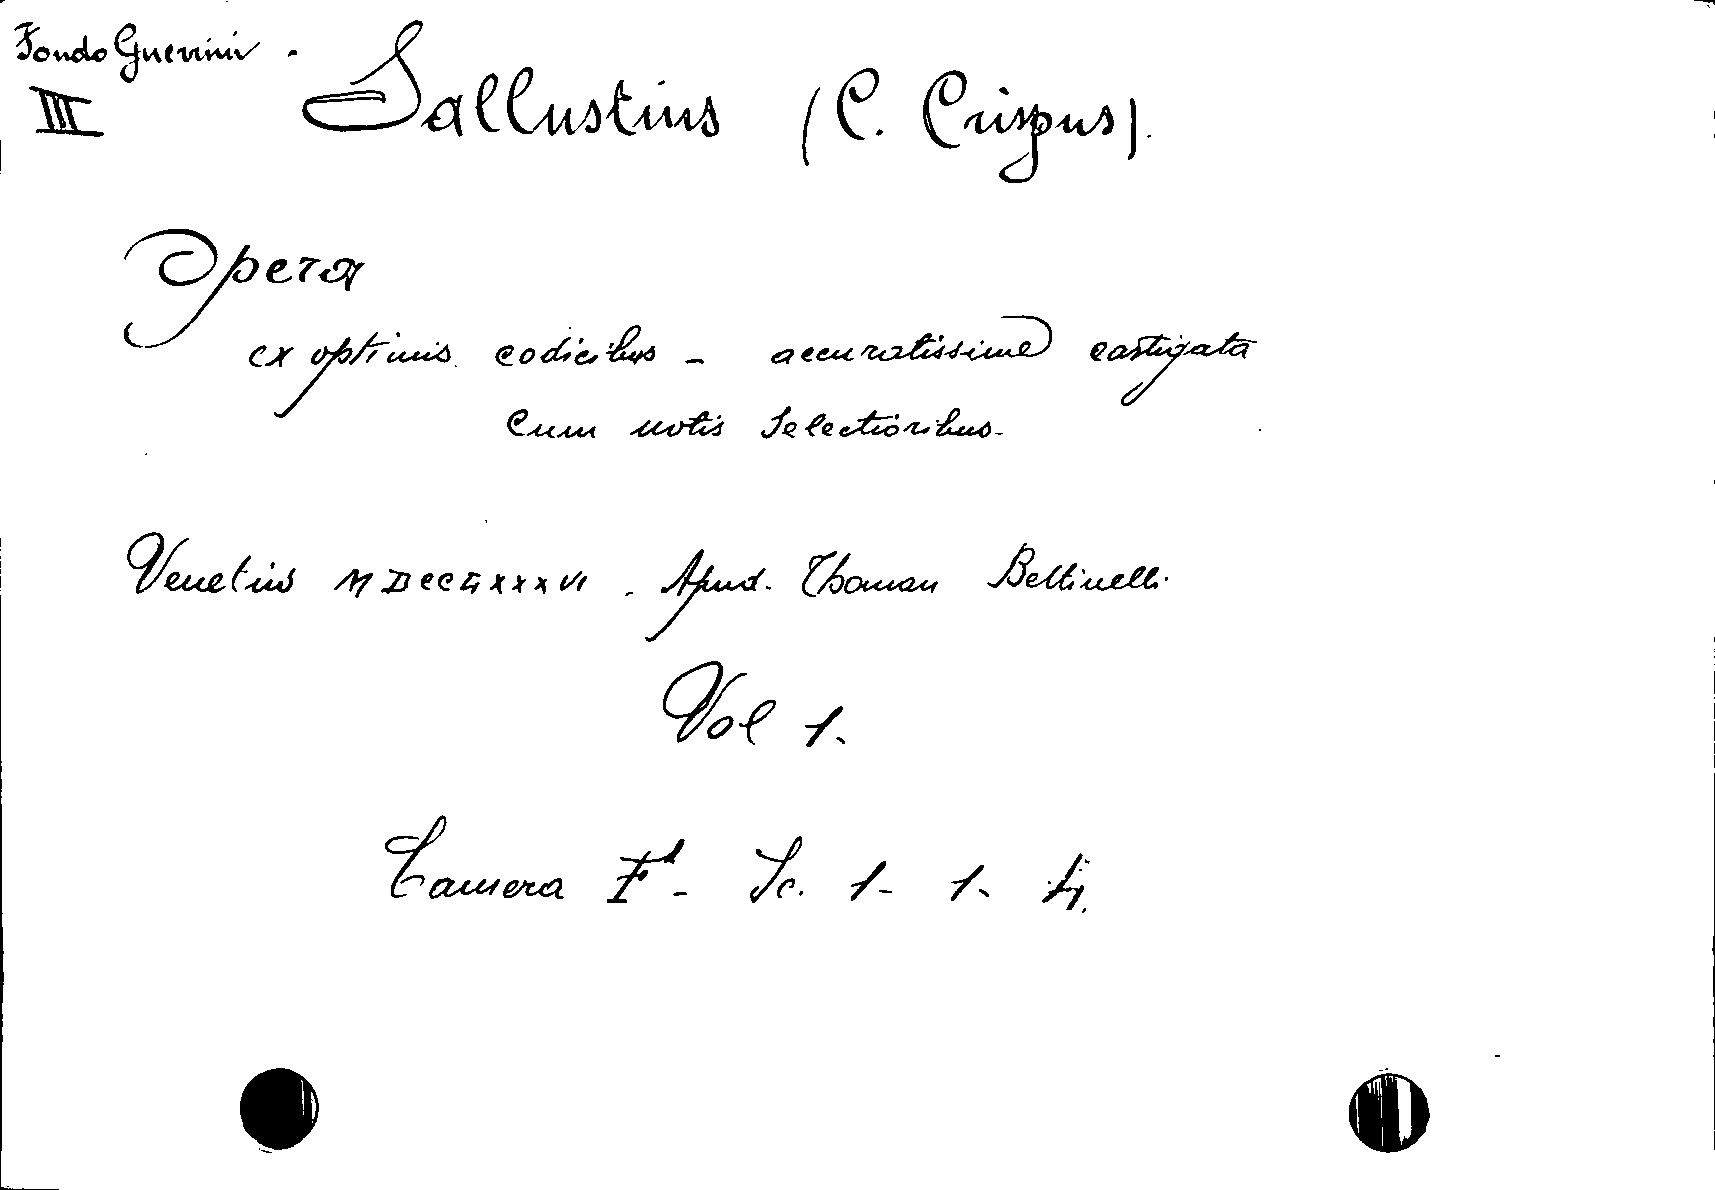 Fondo Guerrini -
III
Sallustius (C. Crispus).
Opera
ex optimis codicibus - accuratissime castigata
Cum notis Selectioribus.
Venetiis MDCCLXXXVI. Apud. Thoman Bettinelli.
Vol 1.
Camera F¹- Sc. 1- 1- 4.